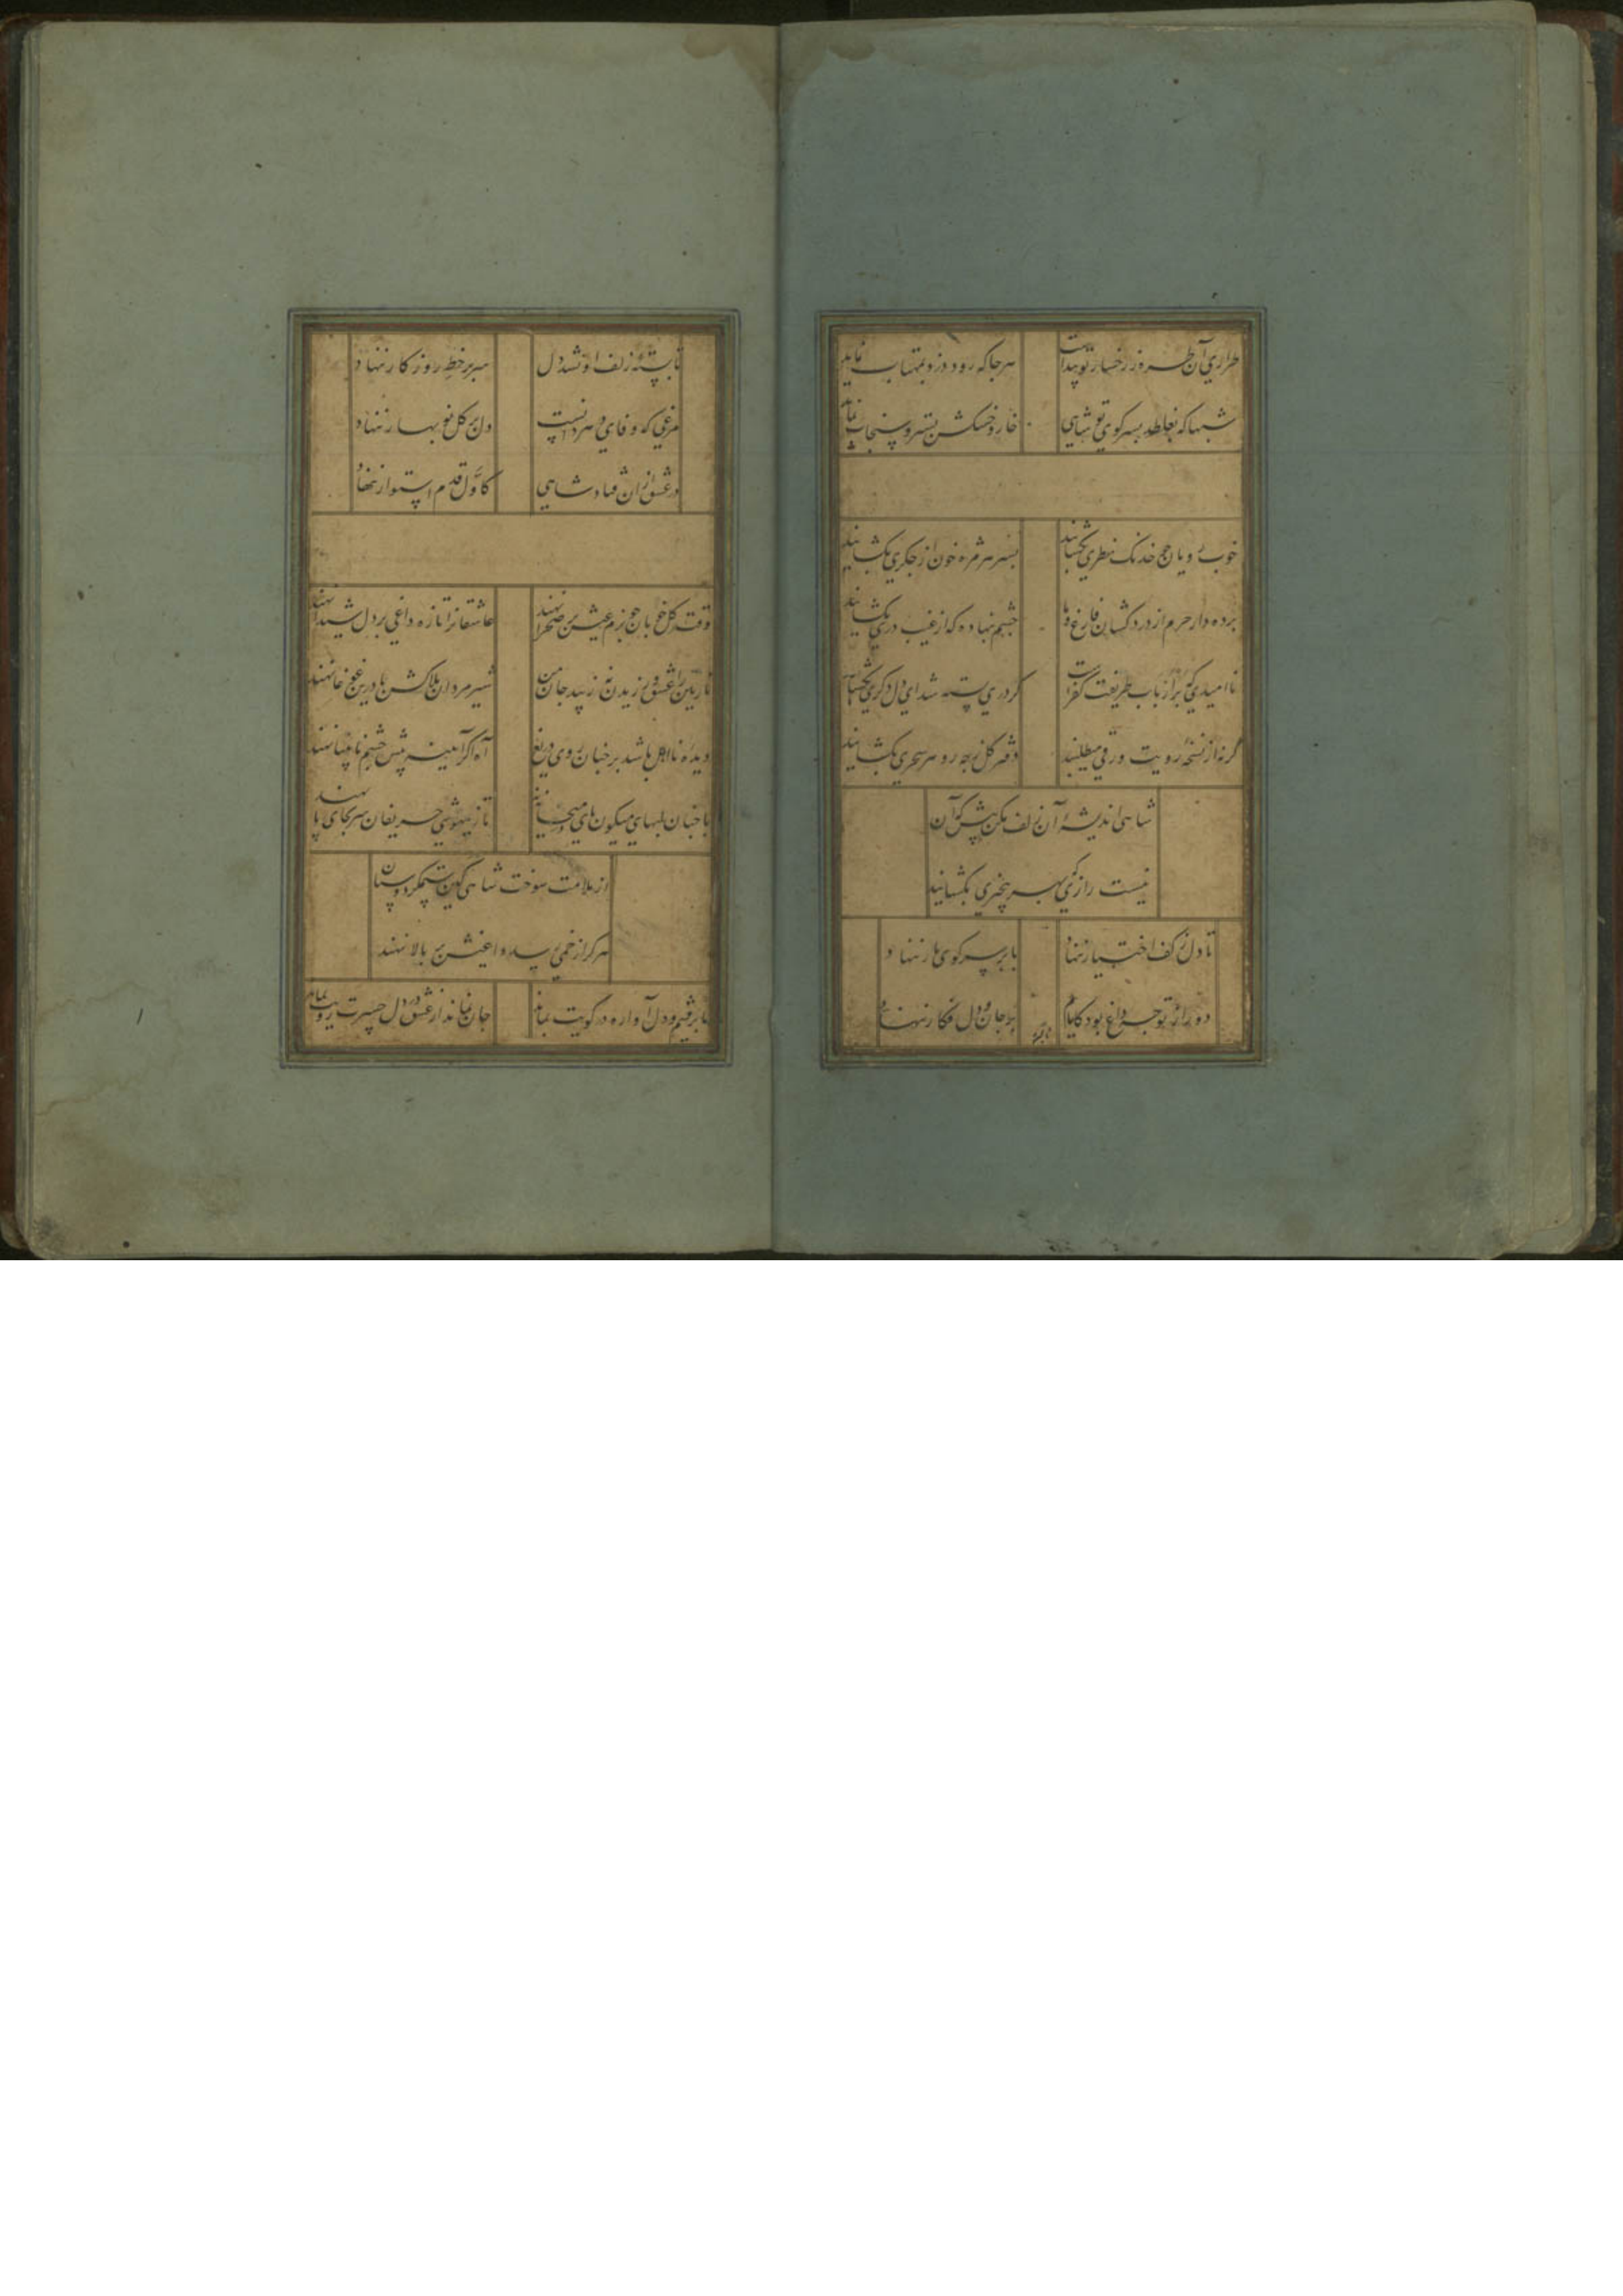 طراری آن طره ز رخسار تو پیداست هر جا که رود دزد بمهتاب نماید
شبها که بغلطد بسر کوی تو شاهی خار و خسکش بستر و سنجاب نماید
خوب رویان چو خدنک نظری بکشایند بسر هر مژه خون از جکری بکشایند
پرده دار حرم از دردکشان فارغ و ما چشم نهاده که از غیب دری بکشایند
ناامیدی بر ارباب طریقت کفرست کر دری بسته شد ای دل دکری بکشایند
کرنه از نسخه رویت ورقی میطلبند دفتر کل بچه رو هر سحری بکشایند
شاهی اندیشه آن زلف مکن پیش کز آن
نیست رازی که بهر بیخبری بکشایند
تا دل ز کف اختیار ننهاد پا بر سر کوی یار ننهاد
دور از تو چه داغ بود کایام بر جان و دل فکار ننهاد
تا بسته زلف او نشد دل سر بر خط روزکار ننهاد
مرغی که وفای دهر دانست دل بر کل نو بهار ننهاد
در عشق از آن فتاد شاهی کاول قدم استوار ننهاد
وقت کل خوبان چو بزم عیش بر صحرا نهند عاشقانرا تازه داغی بر دل شیدا نهند
نازنین را عشق ورزیدن نزیبد جان من شیر مردان بلاکش پا درین غوغا نهند
دیده نااهل باشد بر چنان روی دریغ آه اکر آیینه پیش چشم نابینا نهند
با چنان لبهای میکون پای در میخانه نه تا ز بیهوشی حریفان سر بجای پا نهند
از ملامت سوخت شاهی کین ستمکر دوستان
هر کرا زخمی رسد داغیش بر بالا نهند
تا برفتیم و دل آواره در کویت بماند جان نماند از عشق و در دل حسرت رویت بماند